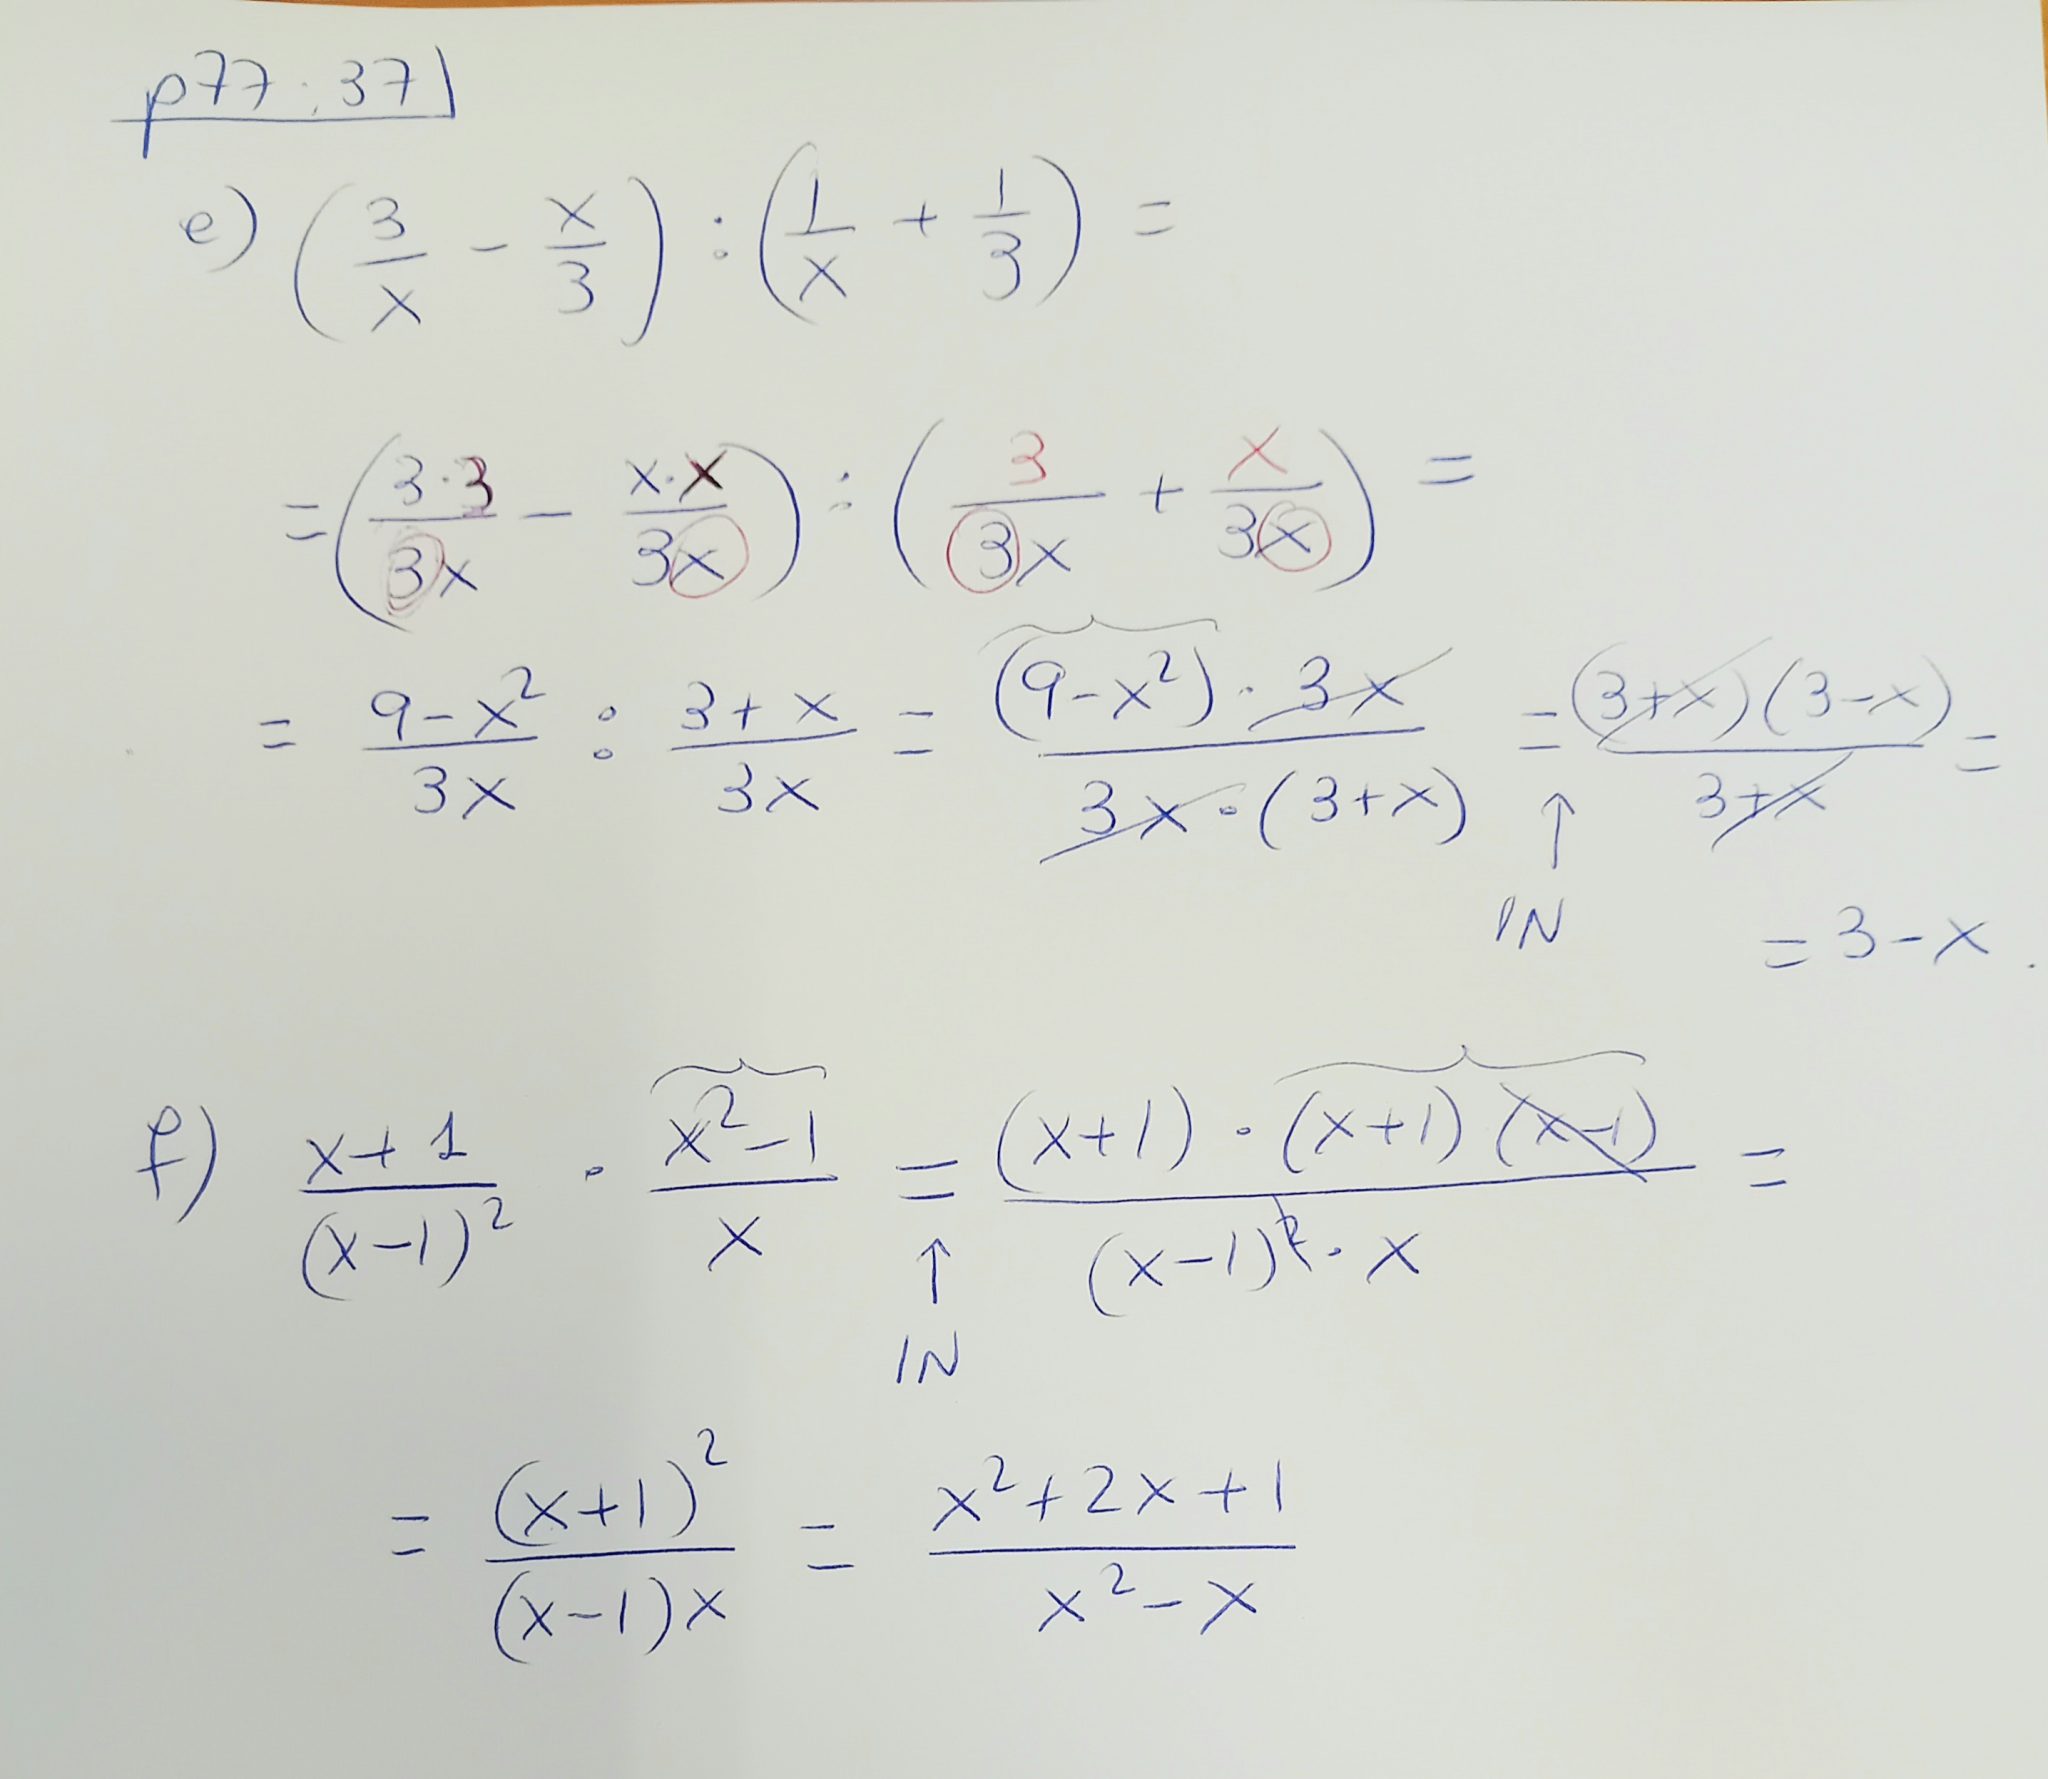 p77 : 37
e) (3/x - x/3) : (1/x + 1/3) =
= (3·3/3x - x·x/3x) : (3/3x + x/3x) =
= 9-x²/3x : 3+x/3x = (9-x²)·3x/3x·(3+x) = (3+x)(3-x)/3+x =
↑
IN
= 3-x.
f) x+1/(x-1)² · x²-1/x = (x+1)·(x+1)(x-1)/(x-1)²·x =
↑
IN
= (x+1)²/(x-1)x = x²+2x+1/x²-x